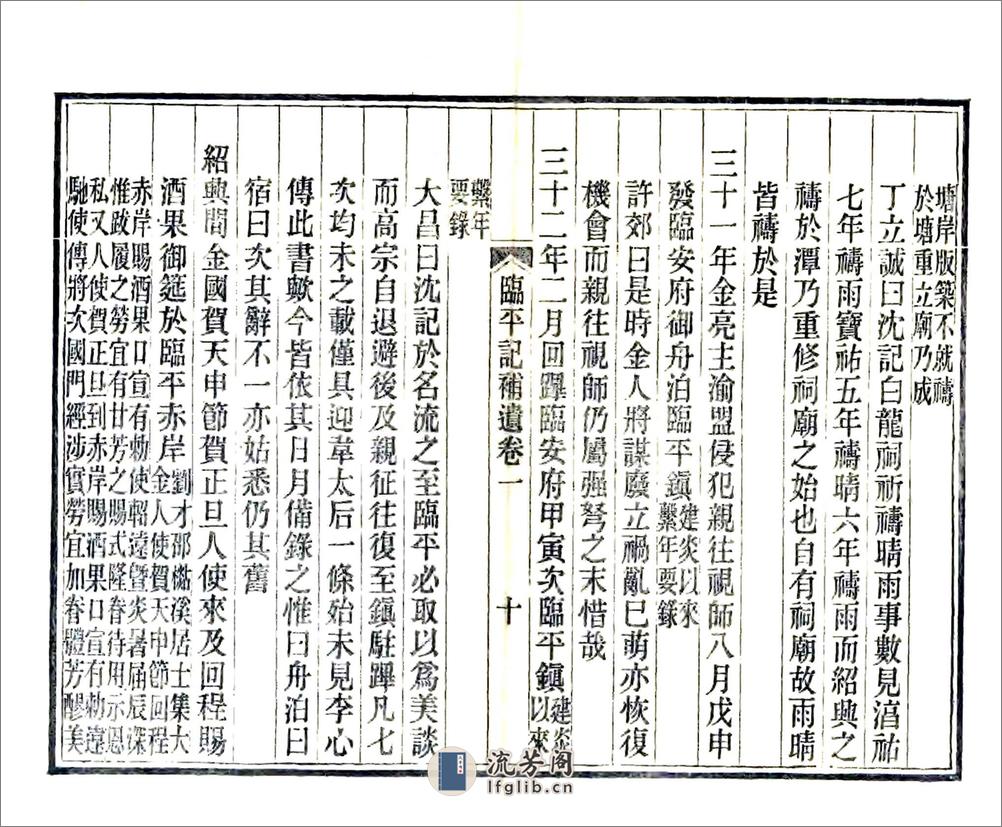 塘岸版築不就禱
於塘重立廟乃成
丁立誠曰沈記白龍祠祈禱晴雨事數見淯祐
七年禱雨寶祐五年禱晴六年禱雨而紹興之
禱於潭乃重修祠廟之始也自有祠廟故雨晴
皆禱於是
三十一年金亮主渝盟侵犯親往視師八月戊申
發臨安府御舟泊臨平鎭
建炎以來
繫年要錄
許郊曰是時金人將謀廢立禍亂已萌亦恢復
機會而親往視師仍屬强弩之末惜哉
三十二年二月回蹕臨安府甲寅次臨平鎭
建炎
以來
臨平記補遺卷一
十
繫年
要錄
大昌曰沈記於名流之至臨平必取以爲美談
而高宗自退避後及親征往復至鎭駐蹕凡七
次均未之載僅具迎韋太后一條始未見李心
傳此書歟今皆依其日月備錄之惟曰舟泊曰
宿曰次其辭不一亦姑悉仍其舊
紹興間金國賀天申節賀正旦人使來及回程賜
酒果御筵於臨平赤岸
劉才邵檆溪居士集大
金人使賀天申節回程
赤岸賜酒果口宣有勅使軺遠曁炎暑届辰深
惟跋履之勞宜有甘芳之賜式隆眷待用示恩
私又人使賀正旦到赤岸賜酒果口宣有勅遠
馳使傳將次國門經涉實勞宜加眷體芳醪美
流芳阁
lfglib.cn